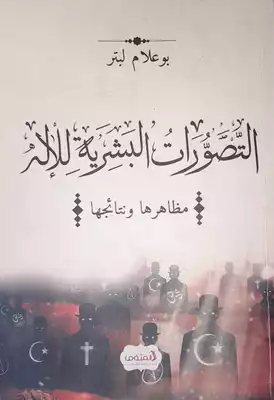 بوعلام لبتر
التَّصَوُّرَاتُ البَشَرِيَّةِ لِلْإِلَهِ
مظاهرها ونتائجها